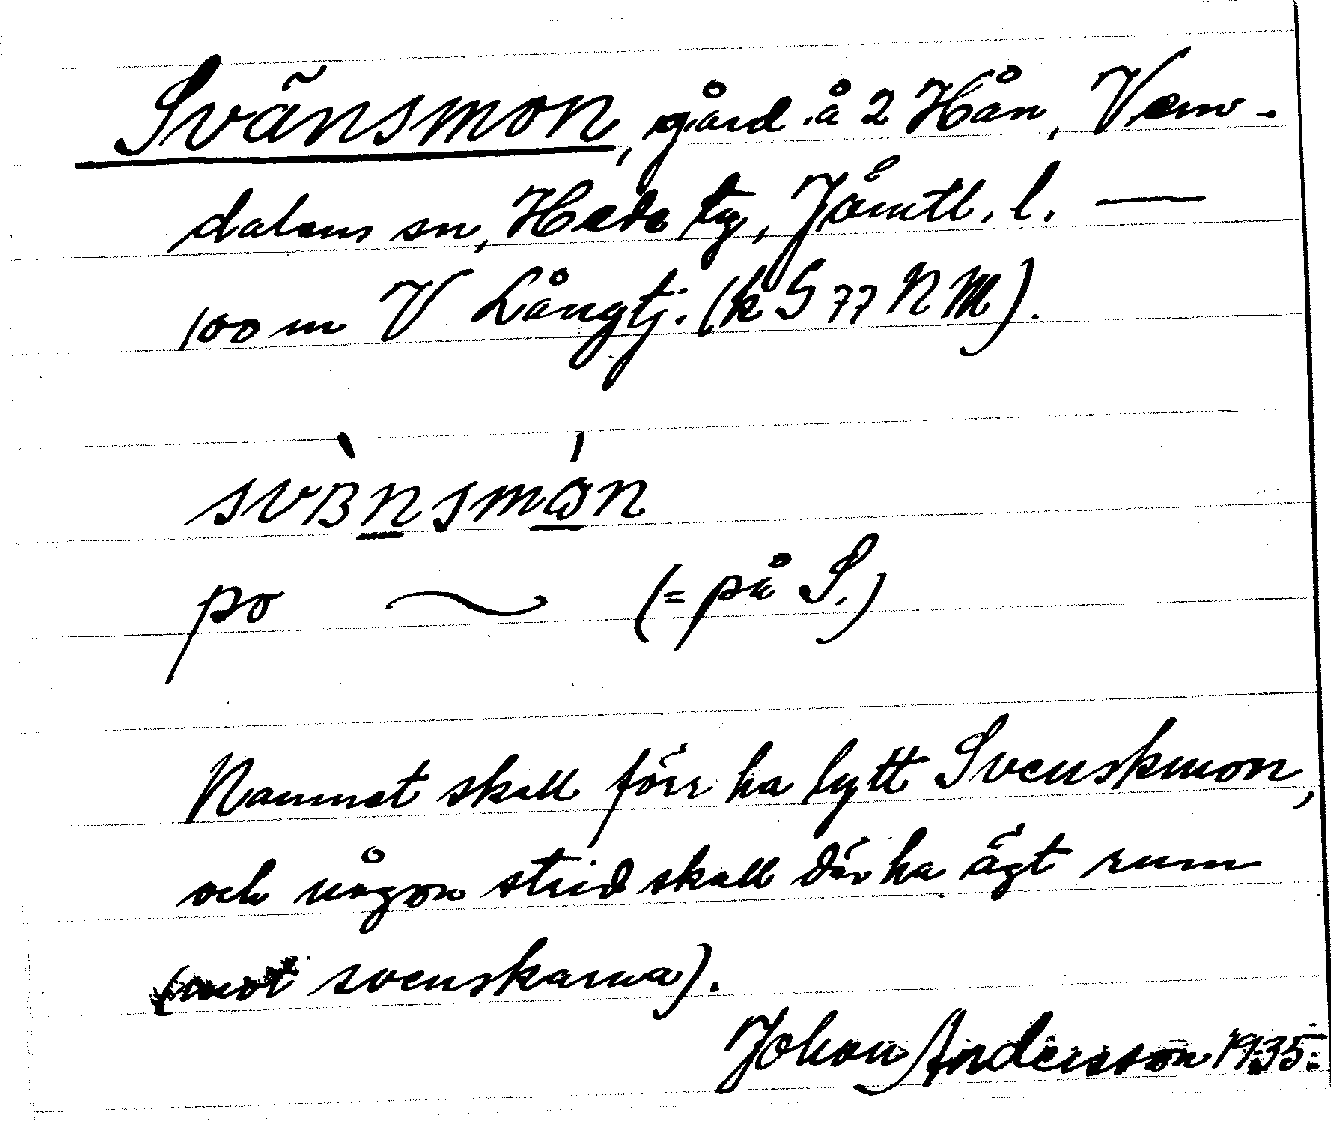 Svänsmon, gård å 2 Hån, Vem-
dalens sn, Hede tg, Jämtl. l. —
100 m V Långtj. (k S 77 N M).
svänsmon
po ~ (= på S.)
Namnet skall förr ha lytt Svenskmon,
och någon strid skall där ha ägt rum
(mot svenskarna).
Johan Andersson 1935.